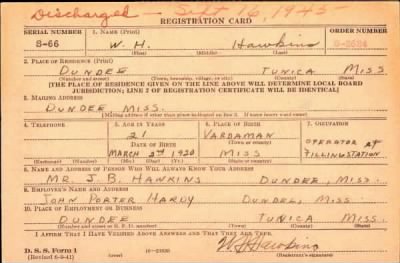 Discharged - Sept 16, 1945
REGISTRATION CARD
SERIAL NUMBER 1. NAME (Print) ORDER NUMBER
S-66 W. H. Hawkins
(First) (Middle) (Last)
2. PLACE OF RESIDENCE (Print)
DUNDEE TUNICA MISS.
(Number and street) (Town, township, village, or city) (County) (State)
[THE PLACE OF RESIDENCE GIVEN ON THE LINE ABOVE WILL DETERMINE LOCAL BOARD
JURISDICTION; LINE 2 OF REGISTRATION CERTIFICATE WILL BE IDENTICAL]
3. MAILING ADDRESS
DUNDEE MISS.
[Mailing address if other than place indicated on line 2. If same insert word same]
4. TELEPHONE 5. AGE IN YEARS 6. PLACE OF BIRTH 7. OCCUPATION
21 VARDAMAN
DATE OF BIRTH OPERATOR AT
MARCH 2nd 1920 MISS FILLING STATION
(Exchange) (Number) (Mo.) (Day) (Yr.) (State or country)
8. NAME AND ADDRESS OF PERSON WHO WILL ALWAYS KNOW YOUR ADDRESS
MR. J. B. HAWKINS DUNDEE, MISS.
9. EMPLOYER'S NAME AND ADDRESS
JOHN PORTER HARDY DUNDEE, MISS
10. PLACE OF EMPLOYMENT OR BUSINESS
DUNDEE TUNICA MISS
(Number and street or R. F. D. number) (Town) (County) (State)
I AFFIRM THAT I HAVE VERIFIED ABOVE ANSWERS AND THAT THEY ARE TRUE.
D. S. S. Form 1 W H Hawkins
(Revised 6-9-41) (Registrant's signature)